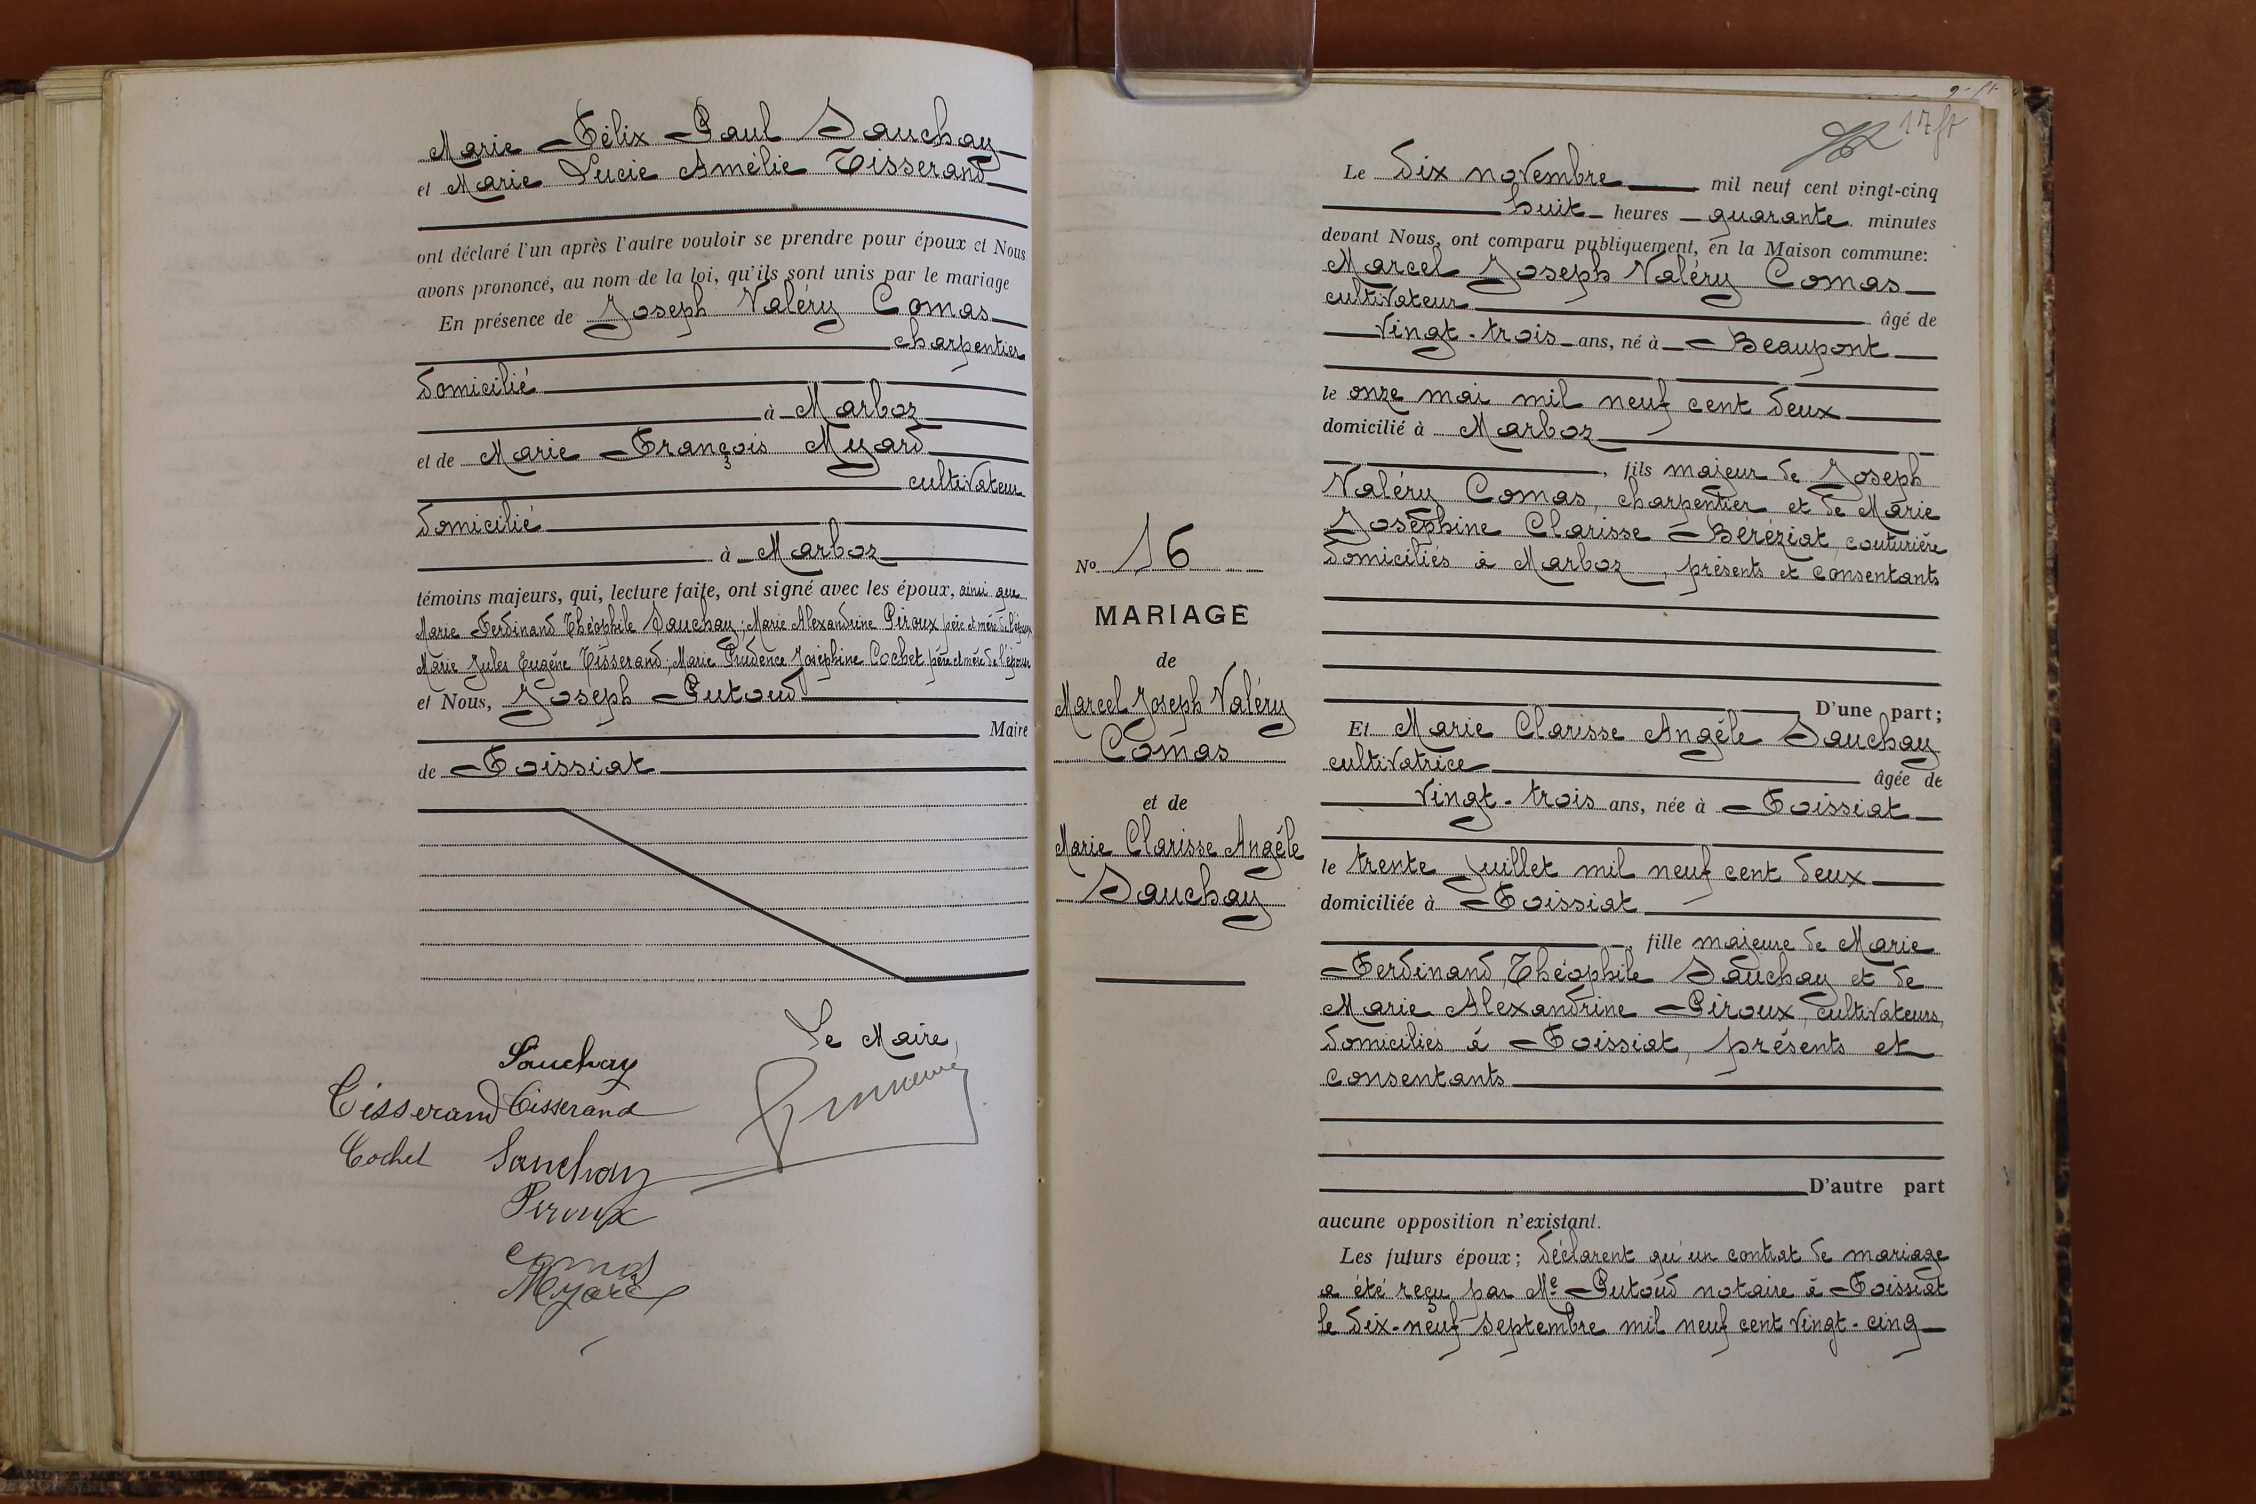 Marie Félix Paul Sauchay
et Marie Lucie Amélie Tisserand
ont déclaré l'un après l'autre vouloir se prendre pour époux et Nous
avons prononcé, au nom de la loi, qu'ils sont unis par le mariage
En présence de Joseph Valéry Comas
charpentier
domicilié
à Marboz
et de Marie François Myard
cultivateur
domicilié
à Marboz
témoins majeurs, qui, lecture faite, ont signé avec les époux, ainsi que
Marie Ferdinand Théophile Sauchay; Marie Alexandrine Piroux père et mère de l'époux
Marie Jules Eugène Tisserand; Marie Prudence Joséphine Cochet père et mère de l'épouse
et Nous, Joseph Putoud
Maire
de Foissiat
Le Maire,
Sauchay
Tisserand Tisserand
Cochet Sauchay
Piroux
Comas
Myard
17 ft
Le dix novembre mil neuf cent vingt-cinq
huit heures quarante minutes
devant Nous, ont comparu publiquement, en la Maison commune:
Marcel Joseph Valéry Comas
cultivateur âgé de
vingt-trois ans, né à Beaupont
le onze mai mil neuf cent deux
domicilié à Marboz
, fils majeur de Joseph
Valéry Comas, charpentier et de Marie
Joséphine Clarisse Béréziat, couturière
domiciliés à Marboz, présents et consentants
D'une part;
Et Marie Clarisse Angèle Sauchay
cultivatrice âgée de
vingt-trois ans, née à Foissiat
le trente juillet mil neuf cent deux
domiciliée à Foissiat
, fille majeure de Marie
Ferdinand Théophile Sauchay et de
Marie Alexandrine Piroux, cultivateurs,
domiciliés à Foissiat, présents et
consentants
D'autre part
aucune opposition n'existant.
Les futurs époux; déclarent qu'un contrat de mariage
a été reçu par Me Putoud notaire à Foissiat
le dix-neuf septembre mil neuf cent vingt-cinq
No 16
MARIAGE
de
Marcel Joseph Valéry
Comas
et de
Marie Clarisse Angèle
Sauchay